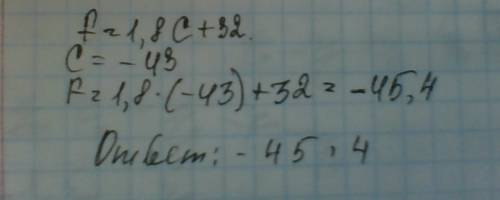 f = 1,8 C + 32.
C = - 43
F = 1,8 · (-43) + 32 = -45,4
Ответ: - 45,4